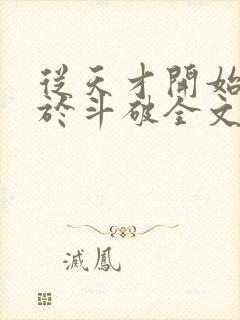 從天才開始
於斗破全文
滅鳳